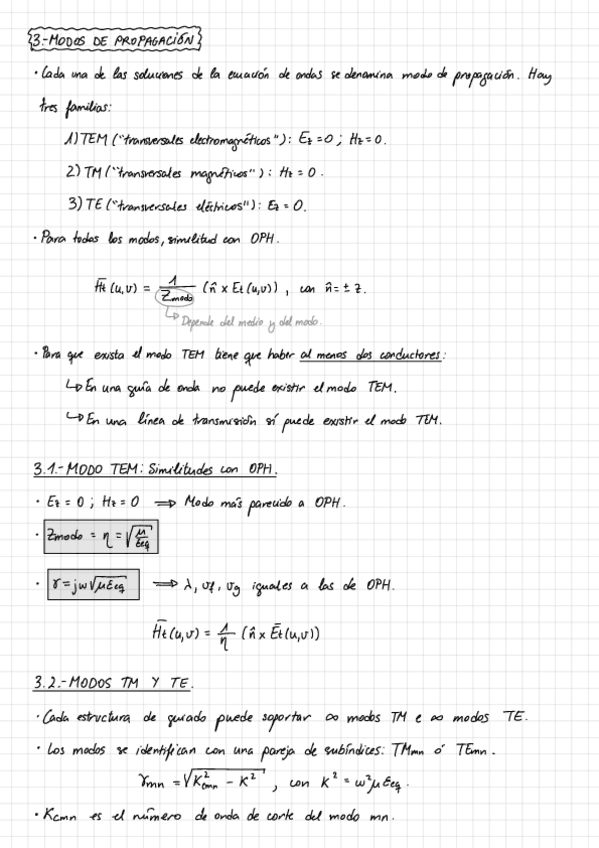 3.-MODOS DE PROPAGACIÓN
· Cada una de las soluciones de la ecuación de ondas se denomina modo de propagación. Hay
tres familias:
1) TEM ("transversales electromagnéticos"): Ez = 0 ; Hz = 0.
2) TM ("transversales magnéticos"): Hz = 0.
3) TE ("transversales eléctricos"): Ez = 0.
· Para todos los modos, similitud con OPH.
H̄t (u,v) = 1/Zmodo (n̂ x Et (u,v)) , con n̂ = ± z.
↳ Depende del medio y del modo.
· Para que exista el modo TEM tiene que haber al menos dos conductores:
↳ En una guía de onda no puede existir el modo TEM.
↳ En una línea de transmisión sí puede existir el modo TEM.
3.1.-MODO TEM: Similitudes con OPH.
· Ez = 0 ; Hz = 0 ⟹ Modo más parecido a OPH.
· Zmodo = η = √(μ/εeq)
· γ = jw√(μεeq) ⟹ λ, vf, vg iguales a las de OPH.
H̄t (u,v) = 1/η (n̂ x Ēt (u,v))
3.2.-MODOS TM Y TE.
· Cada estructura de guiado puede soportar ∞ modos TM e ∞ modos TE.
· Los modos se identifican con una pareja de subíndices: TMmn ó TEmn.
γmn = √(K²cmn - K²) , con K² = w²μεeq.
· Kcmn es el número de onda de corte del modo mn.